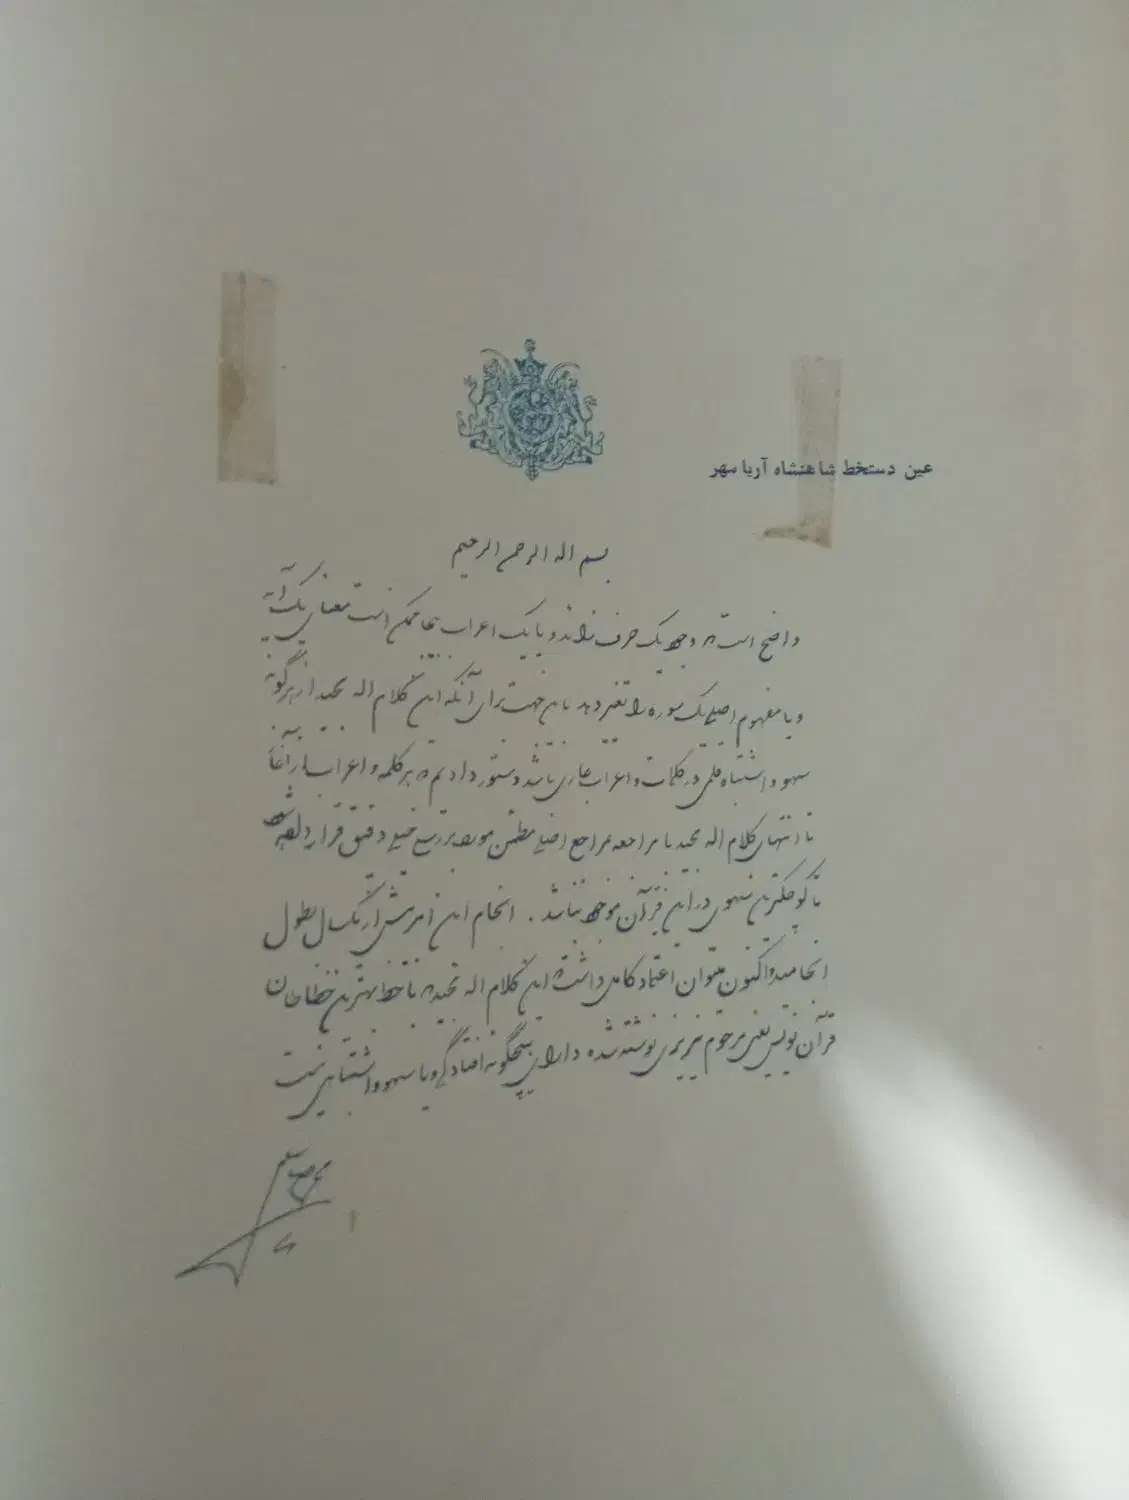 عین دستخط شاهنشاه آریا مهر
بسم اله الرحمن الرحیم
واضح است که وجود یک حرف زائد و یا یک اعراب بیجا ممکن است معنای یک آیه
و یا مفهوم اصلی یک سوره را تغییر دهد باین جهت برای آنکه این کلام اله مجید از هر گونه
سهو و اشتباه قلمی در کلمات و اعراب عاری باشد دستور دادیم که هر کلمه و اعراب آنرا از آغاز
تا انتهای کلام اله مجید با مراجعه بمراجع اصلی مطمئن مورد بررسی خیلی دقیق قرار داده شود
تا کوچکترین سهوی در این قرآن موجود نباشد . انجام این امر بیش از یکسال بطول
انجامید و اکنون میتوان اعتماد کامل داشت که این کلام اله مجید که با خط بهترین خطاطان
قرآن نویس یعنی مرحوم نیریزی نوشته شده دارای هیچگونه افتادگی و یا سهو و اشتباهی نیست